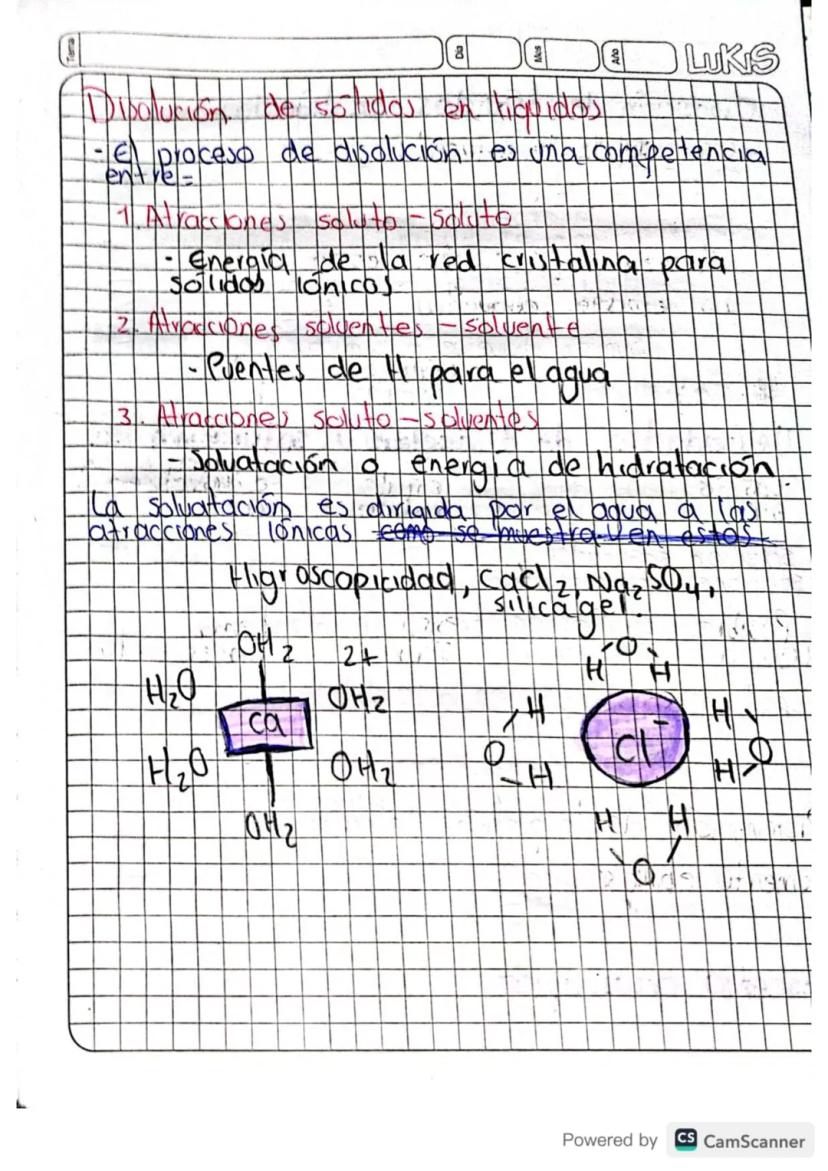 Tema
Día
Mes
Año
LUKIS
Disolución de sólidos en líquidos
- El proceso de disolución es una competencia
entre=
1. Atracciones soluto - soluto
- Energía de la red cristalina para
sólidos iónicos
2. Atracciones solventes - solvente
- Puentes de H para el agua
3. Atracciones soluto - solventes
- Solvatación o energía de hidratación.
La solvatación es dirigida por el agua a las
atracciones iónicas como se muestra en estos
Higroscopicidad, CaCl2, Na2SO4,
silicagel.
OH2 2+
H2O OH2
Ca
H2O OH2
OH2
O
H H
H
O
H
Cl-
H
O
H
H H
O
Powered by CS CamScanner